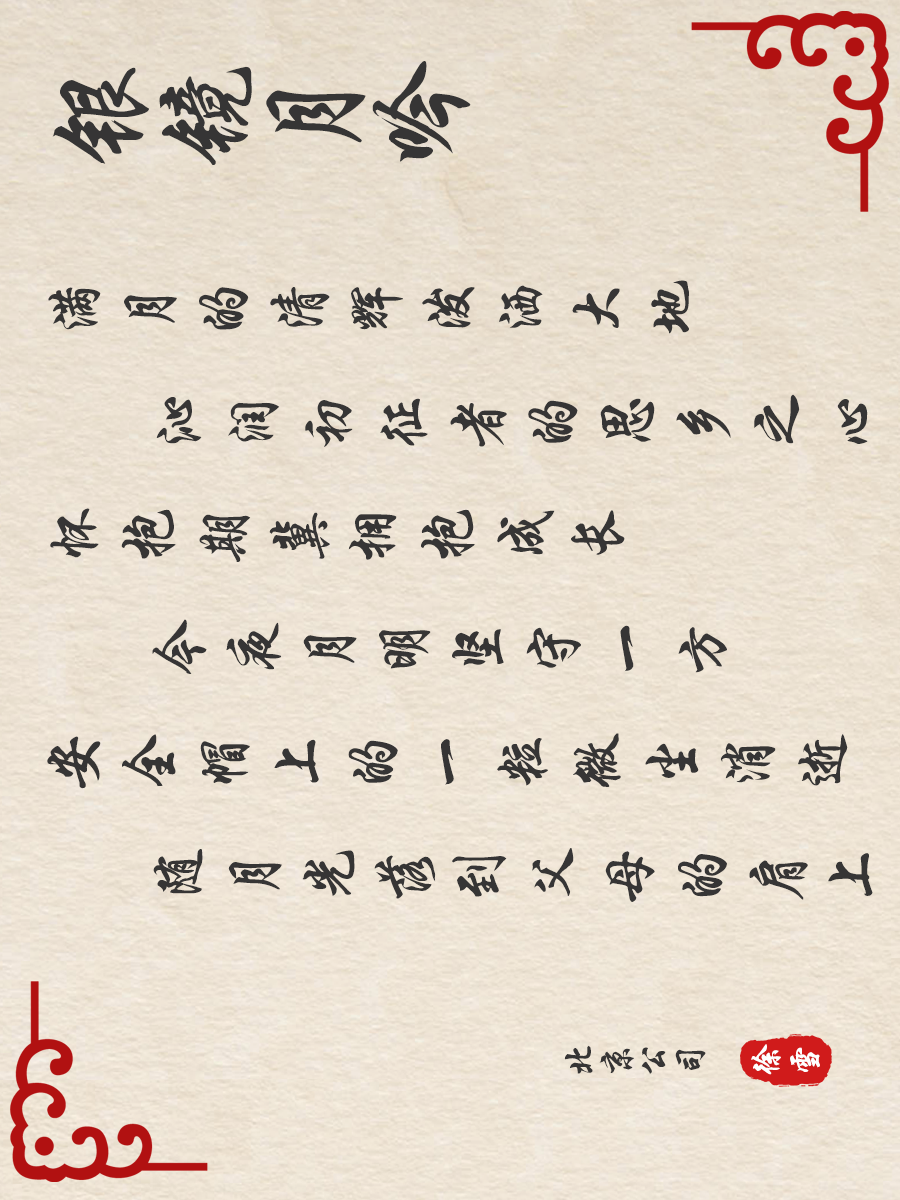 银镜月吟
满月的清辉泼洒大地
沁润初征者的思乡之心
怀抱期冀拥抱成长
今夜月明坚守一方
安全帽上的一粒微尘消逝
随月光落到父母的肩上
北京公司
徐雪